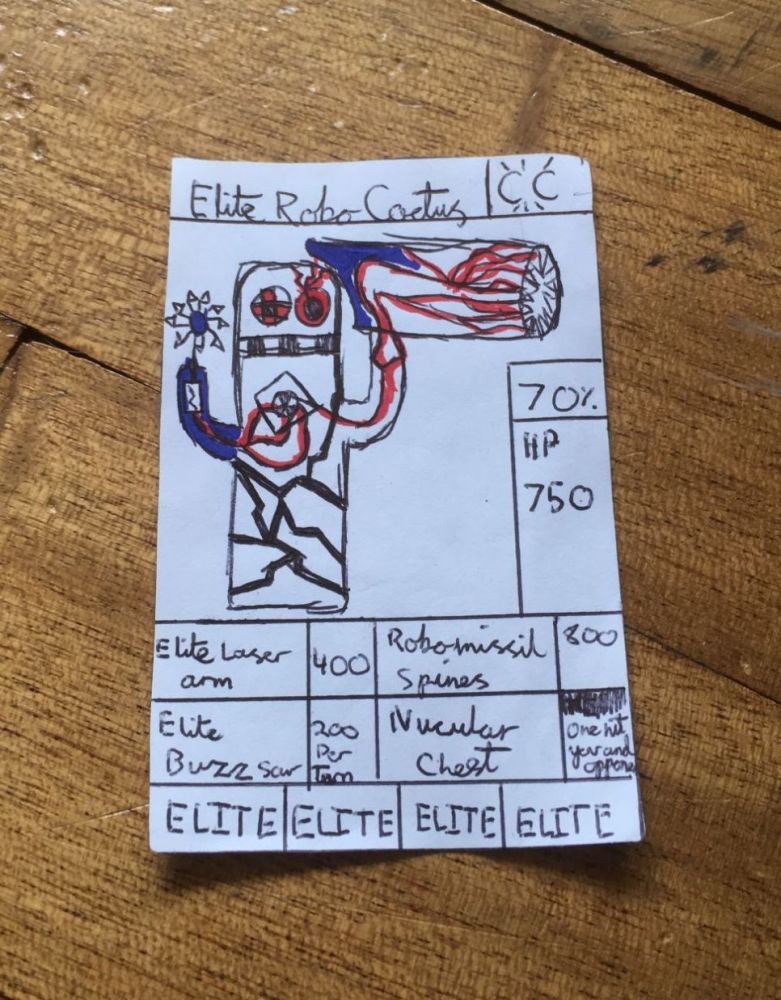 Elite Robo Cactus
CC
70%
HP
750
Elite Laser
arm
400
Robo missil
Spines
800
Elite
Buzz saw
200
Per
Turn
Nucular
Chest
One hit
your and
oppone
ELITE ELITE ELITE ELITE